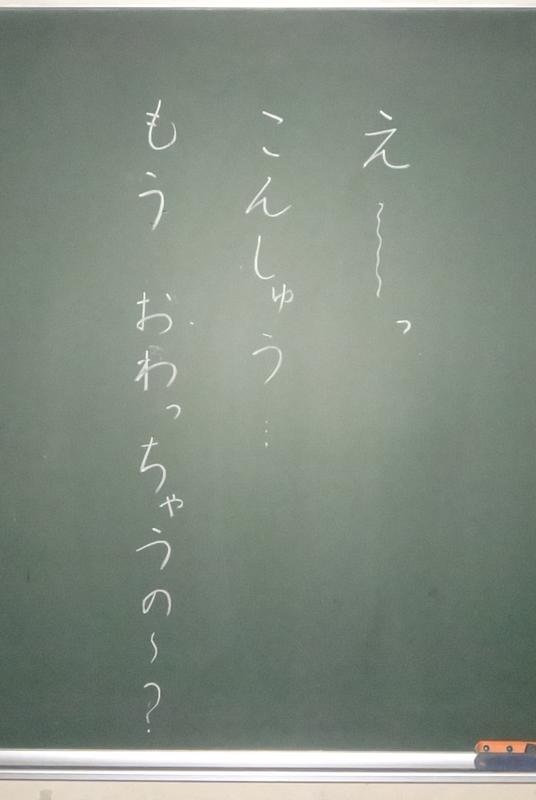 え〜〜っ
こんしゅう…
もう おわっちゃうの〜?